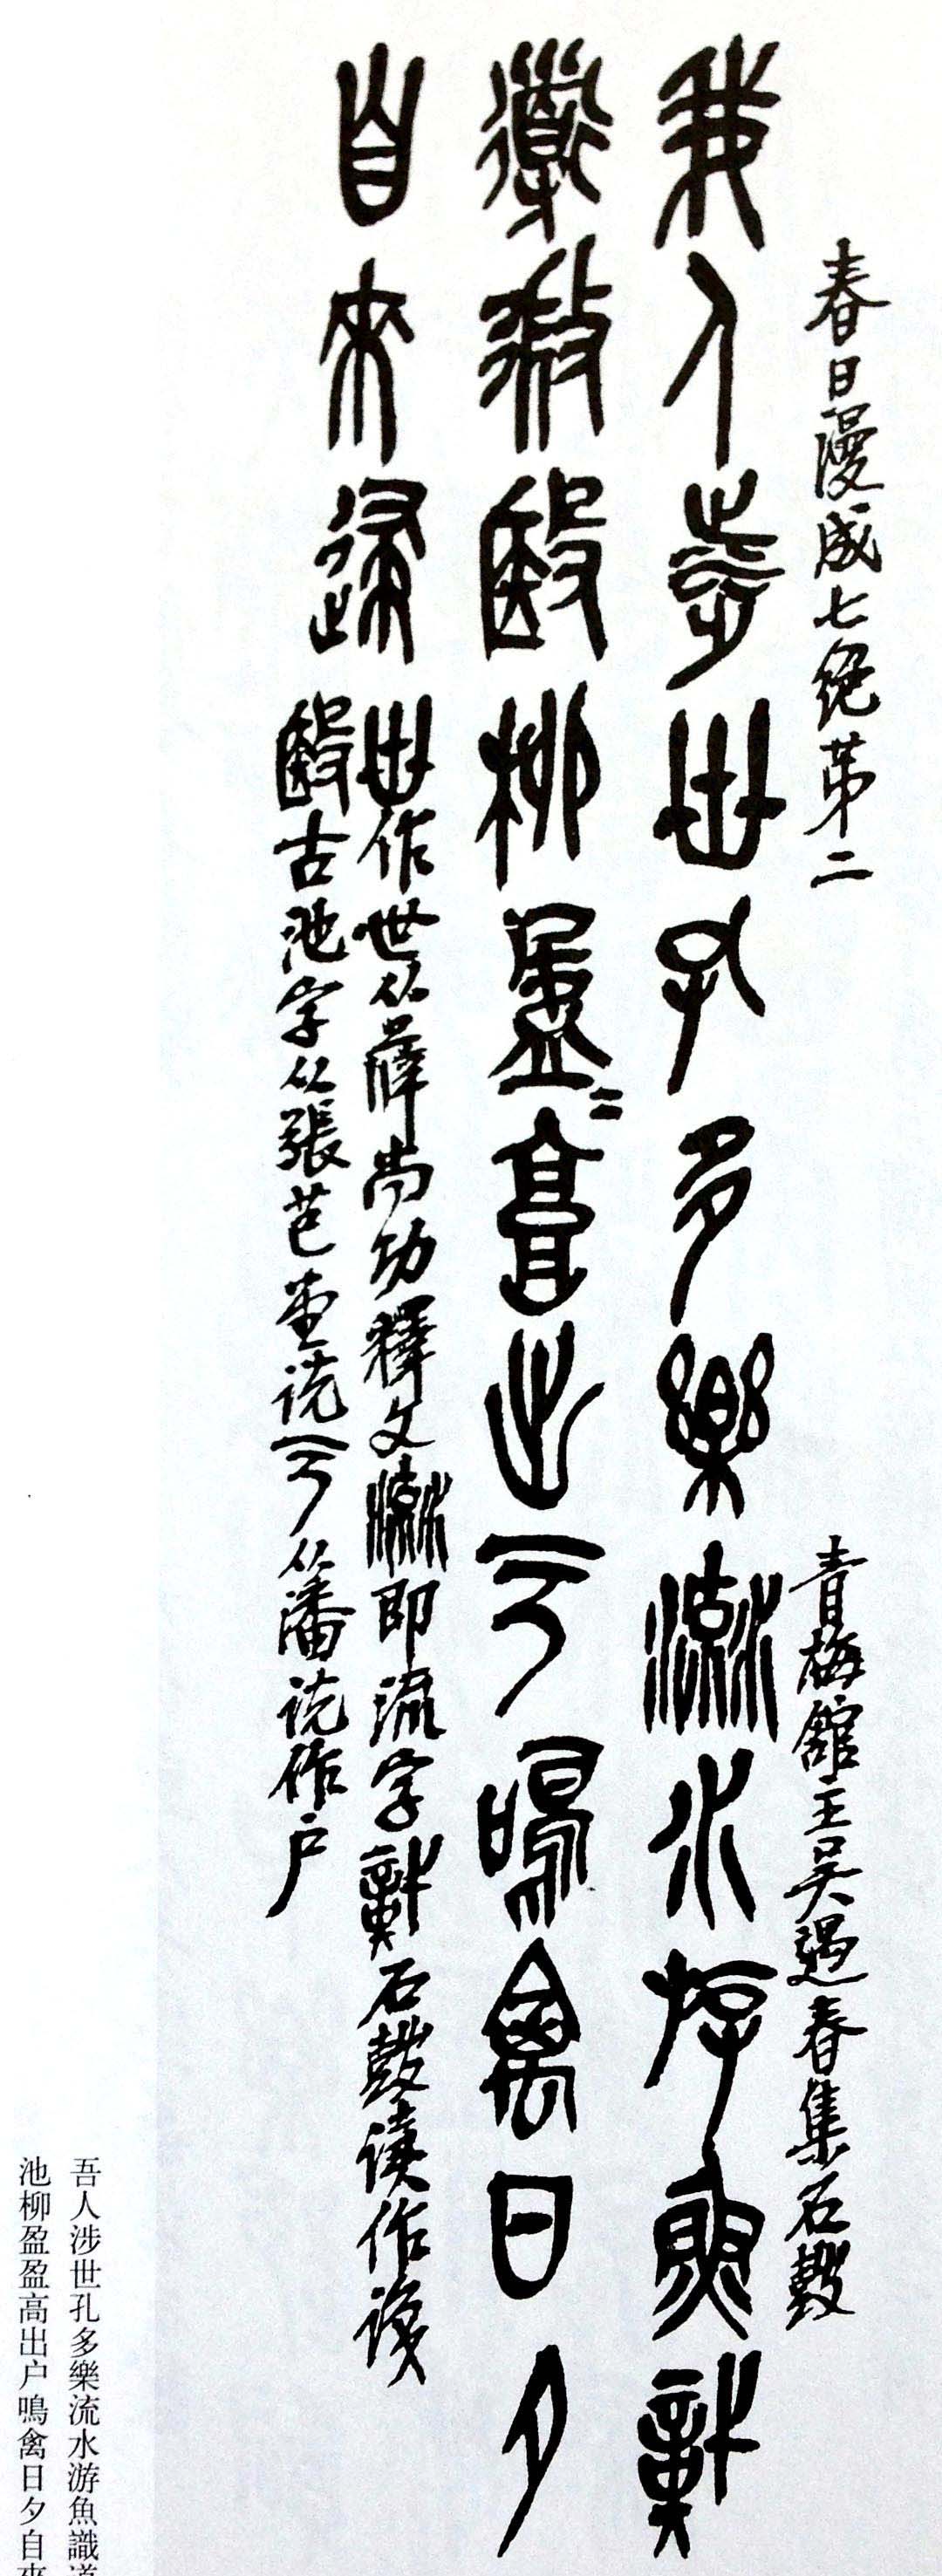 春日漫成七絕第二
青梅館主吴遇春集石鼓
吾人涉世孔多樂流水游魚識
道微殹柳盈〻高出户鳴禽日夕
自來歸
作世从薛尚功釋文即流字石鼓讀作識
殹古池字从張芑堂説从潘説作户
吾人涉世孔多樂流水游魚識道
池柳盈盈高出户鳴禽日夕自來